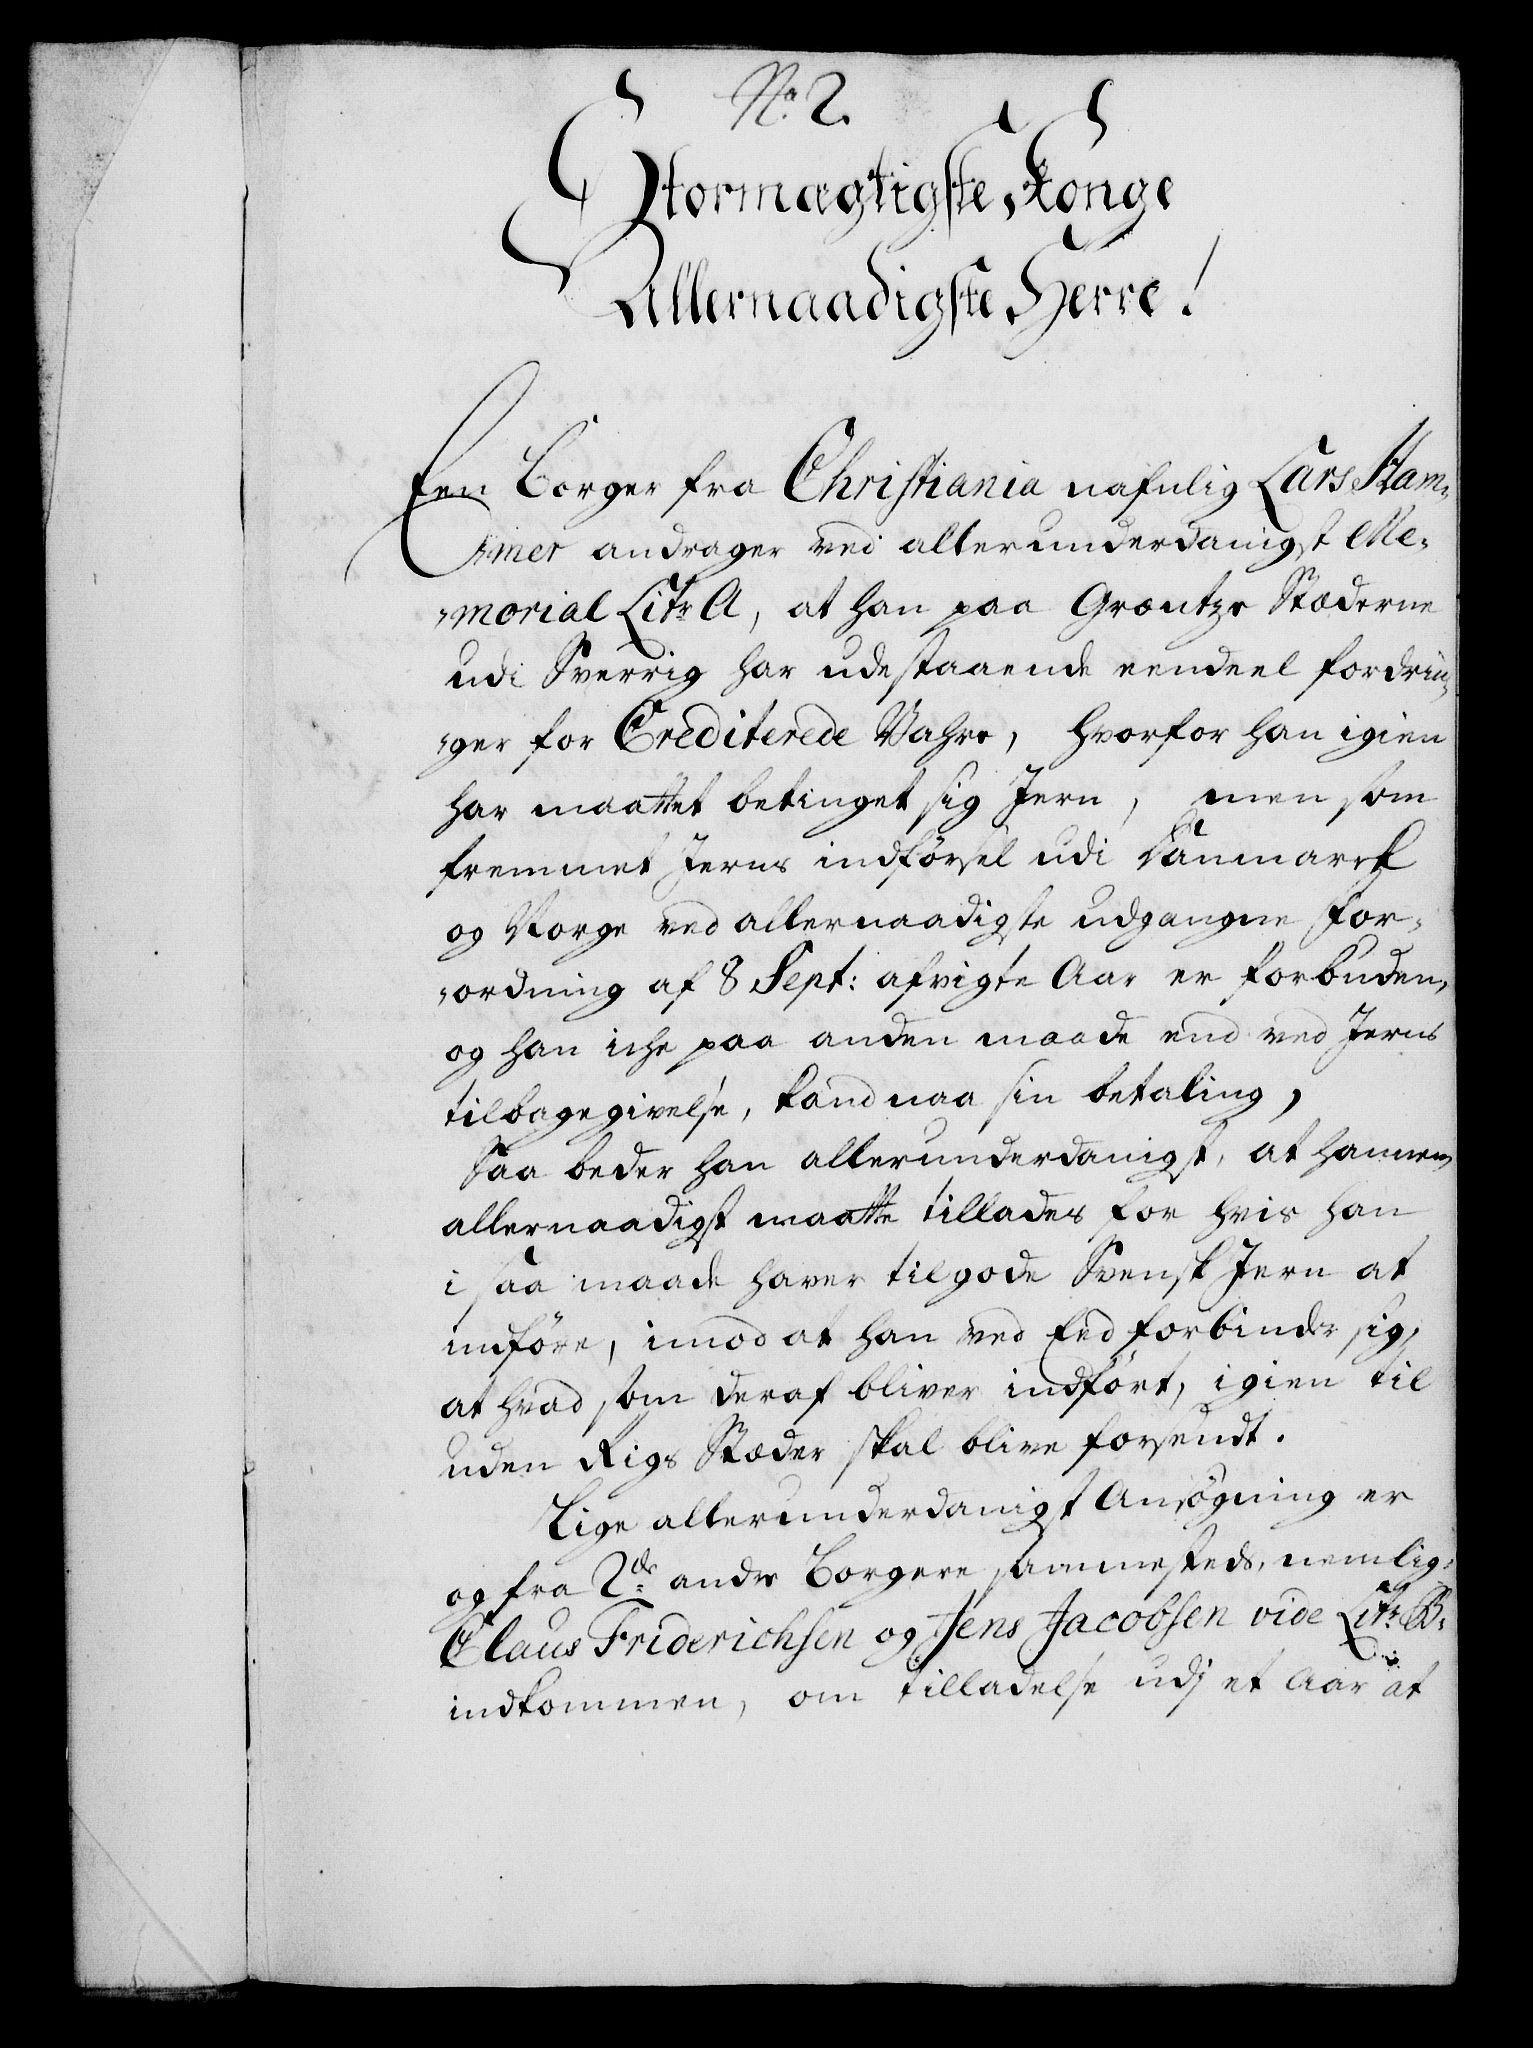 No. 2.
Stormægtigste Konge
Allernaadigste Herre!
Een Borger fra Christiania nafnlig Lars Ham-
-mer andrager ved allerunderdanigst Me-
-morial Litr A, at han paa Græntze Stæderne
udi Sverrig har udestaaende eendeel fordrin-
-ger for Crediterede Vahre, hvorfor han igien
har maattet betinget sig Jern, men som
fremmet Jerns indførsel udi Danmarck
og Norge ved allernaadigste udgangne For-
-ordning af 8 Sept: afvigte Aar er forbuden,
og han iche paa anden maade end ved Jerns
tilbagegivelse, kand naa sin betaling,
Saa beder han allerunderdanigst, at hannem
allernaadigst maatte tillades for hvis han
i saa maade haver tilgode Svensk Jern at
indføre, imod at han ved Eed forbinder sig,
at hvad som deraf bliver indført, igien til
uden Rigs Stæder skal blive forsendt.
Lige allerunderdanigst Ansøgning er
og fra 2de andre Borgere sammesteds, nemlig
Claus Friderichsen og Jens Jacobsen vide Litr B.
indkommen, om tilladelse udj et Aar at